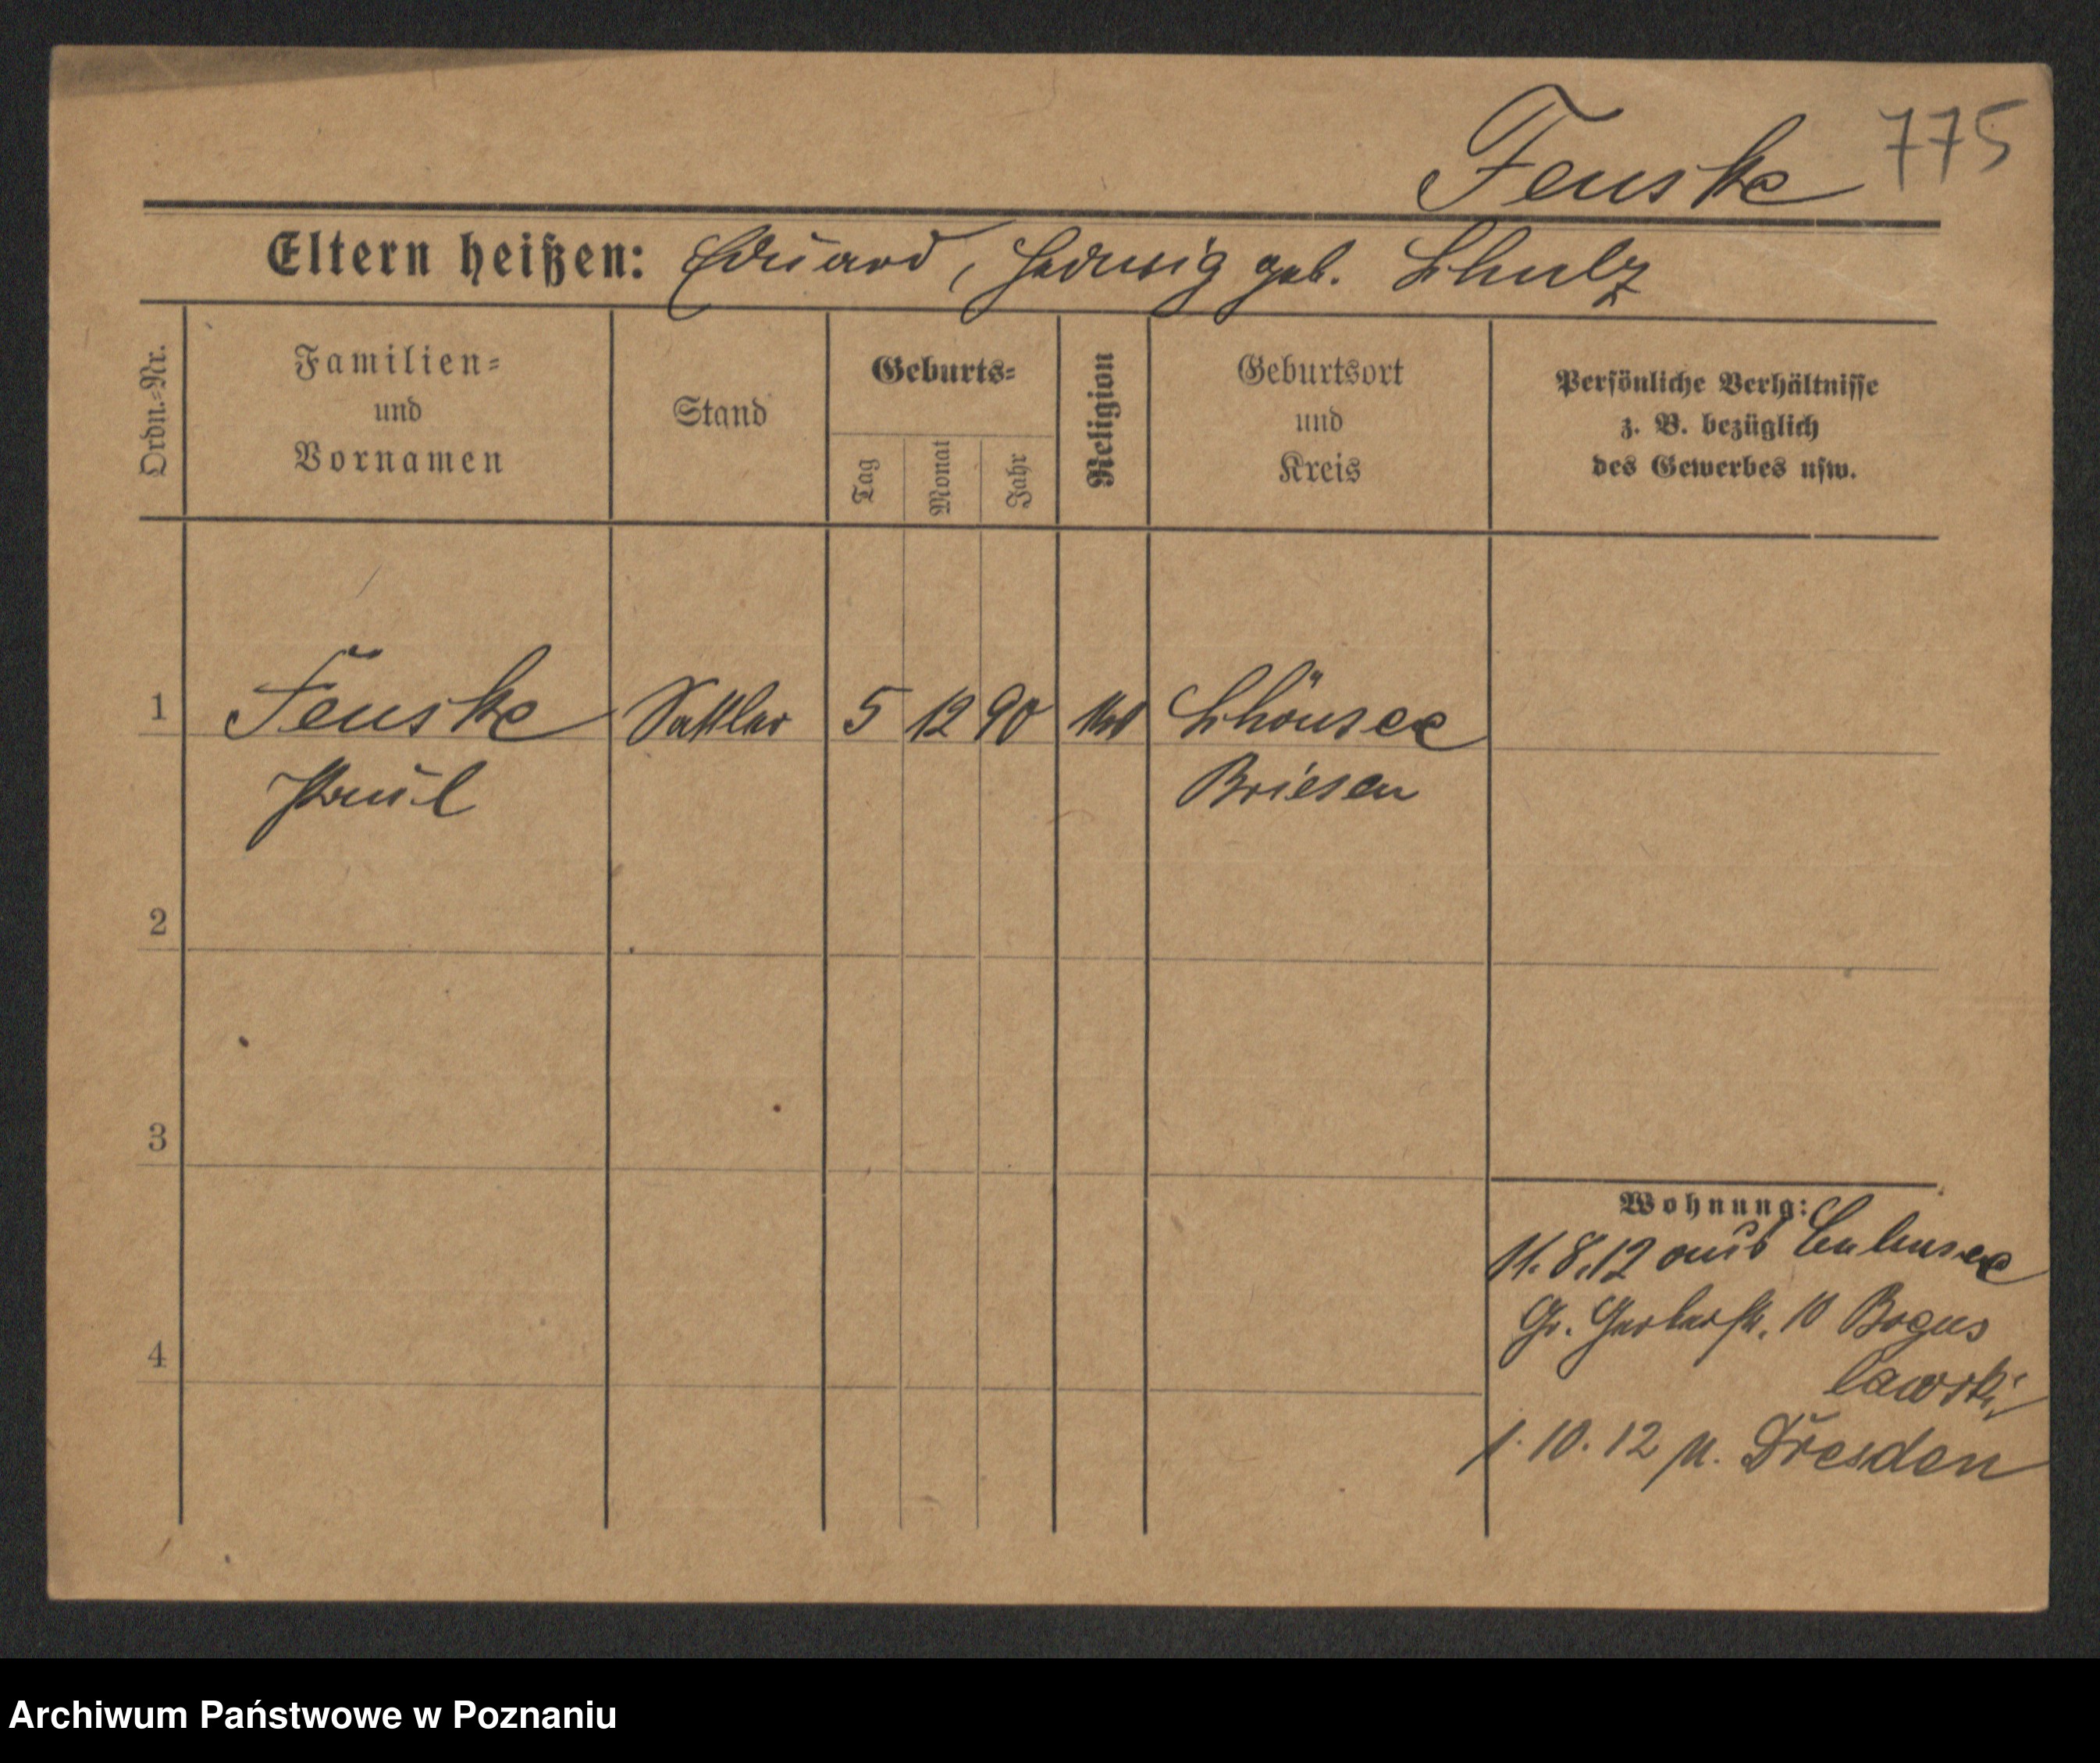 Fenske 775
Eltern heißen: Eduard, Hedwig geb. Schulz
Ordn.-Nr.
Familien-
und
Vornamen
Stand
Geburts-
Tag
Monat
Jahr
Religion
Geburtsort
und
Kreis
Persönliche Verhältnisse
z. B. bezüglich
des Gewerbes usw.
1 Fenske Sattler 5 12 90 Schönsee
Paul Briesen
2
3
4
Wohnung:
11.8.12 aus
Gr. Gerberstr. 10 Bogus
lawski
1.10.12 n. Dresden
Archiwum Państwowe w Poznaniu